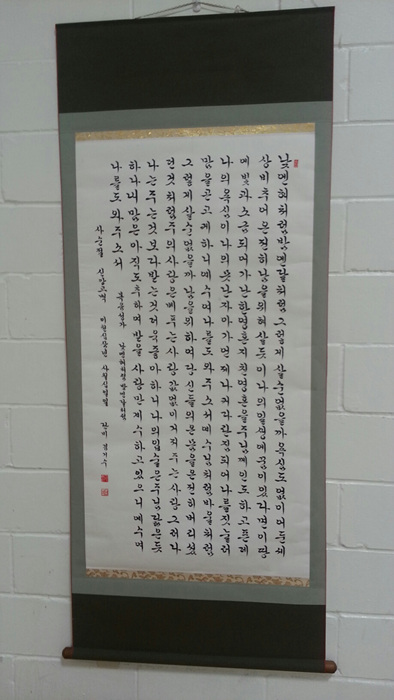 낮엔해처럼밤엔달처럼그렇게살순없을까욕심도없이어둔세
상비추어온전히남을위해살듯이나의일생에꿈이있다면이땅
에빛과소금되어가난한영혼지친영혼을주님께인도하고픈데
나의욕심이나의못난자아가언제나커다란짐되어나를짓눌러
맘을곤고케하니예수여나를도와주소서예수님처럼바울처럼
그렇게살순없을까남을위하여당신들의온몸을온전히버리셨
던것처럼주의사랑은베푸는사랑값없이거저주는사랑그러나
나는주는것보다받는것더욱좋아하니나의입술은주님닮은듯
하나내맘은아직도추하여받을사랑만계수하고있으니예수여
나를도와주소서 복음성가 낮엔해처럼밤엔달처럼